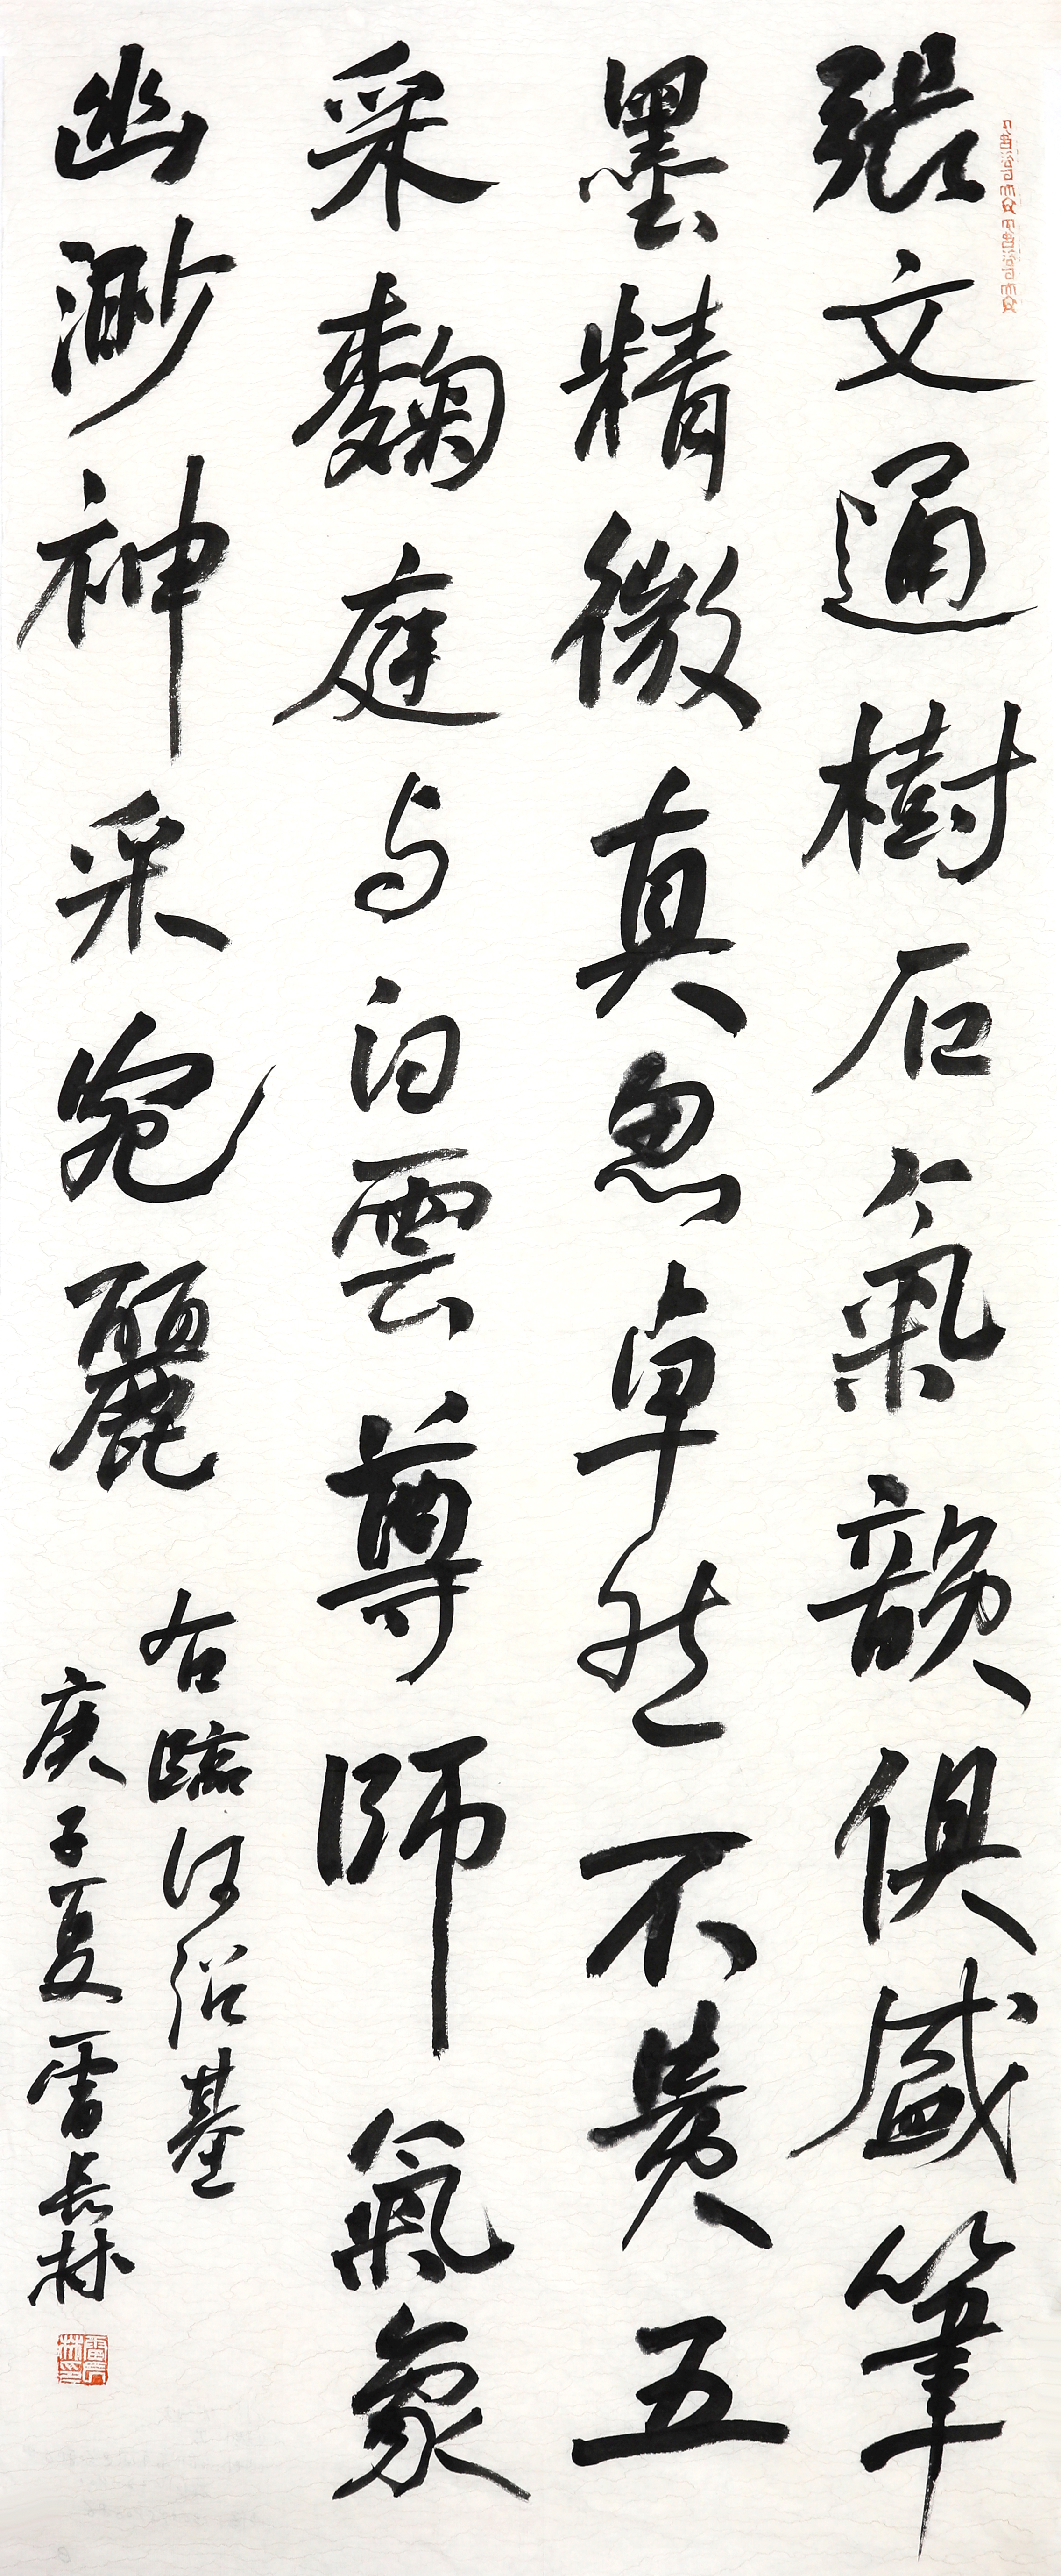 張文通樹石氣韻俱盛筆
墨精微真思卓然不貴五
采麴庭与白雲尊師氣象
幽渺神采宛麗
右臨何紹基
庚子夏雷長林
雷長林印